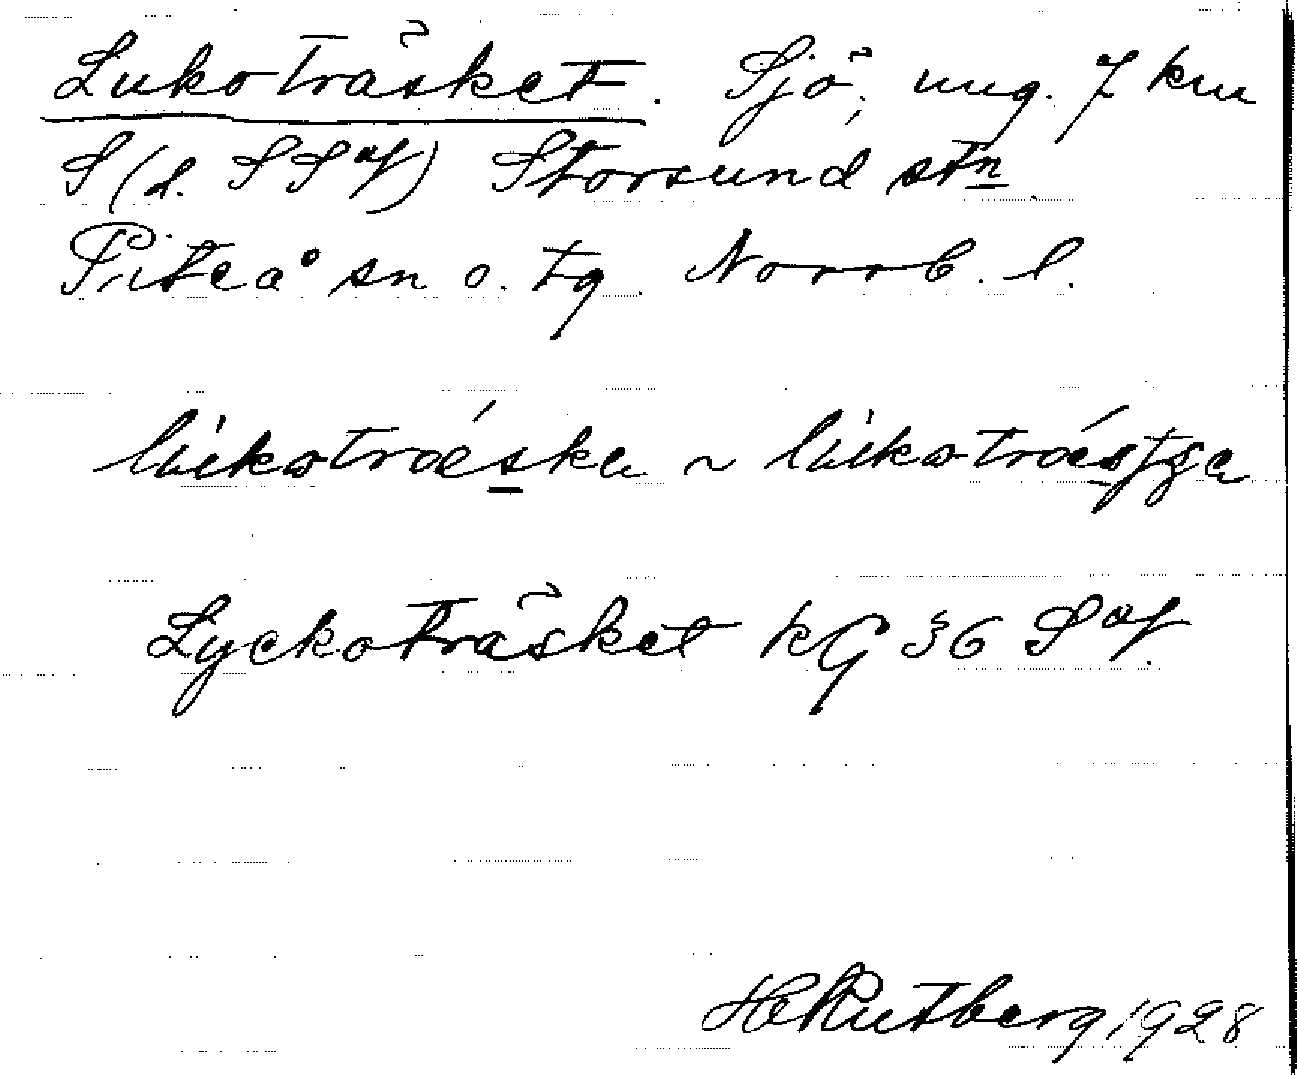 Lukoträsket. Sjö, ung. 7 km
S (d. SS af) Storsund stn
Piteå sn o. tg. Norrb. l.
lùkotrǽska ~ lùkotrǽsʃʒa
Lyckoträsket kG 36 S af
H Rutberg 1928